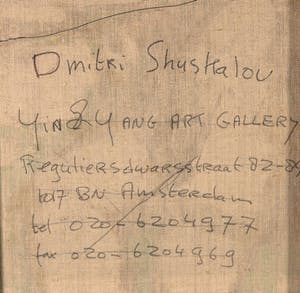 Dmitri Shuskalov
Yin & Yang ART GALLERY
Reguliersdwarsstraat 82-84
1017 BN Amsterdam
tel 020-6204977
fax 020-6204969